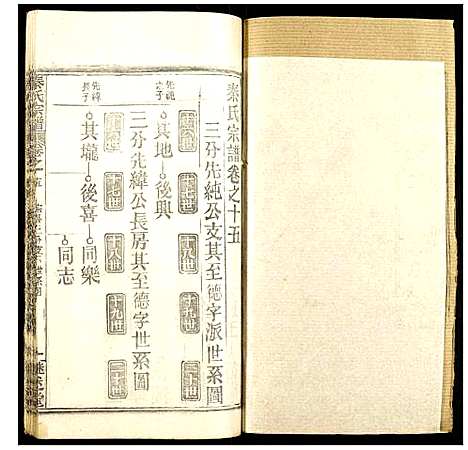 秦氏宗譜卷之十五
三分先純公支其至德字派世系圖
十六世 十七世 十八世 十九世 二十世
先純之子
其地 後興
三分先緯公長房其至德字世系圖
十六世 十七世 十八世 十九世 二十世
先緯長子
其壠 後喜 同樂
同志
秦氏宗譜